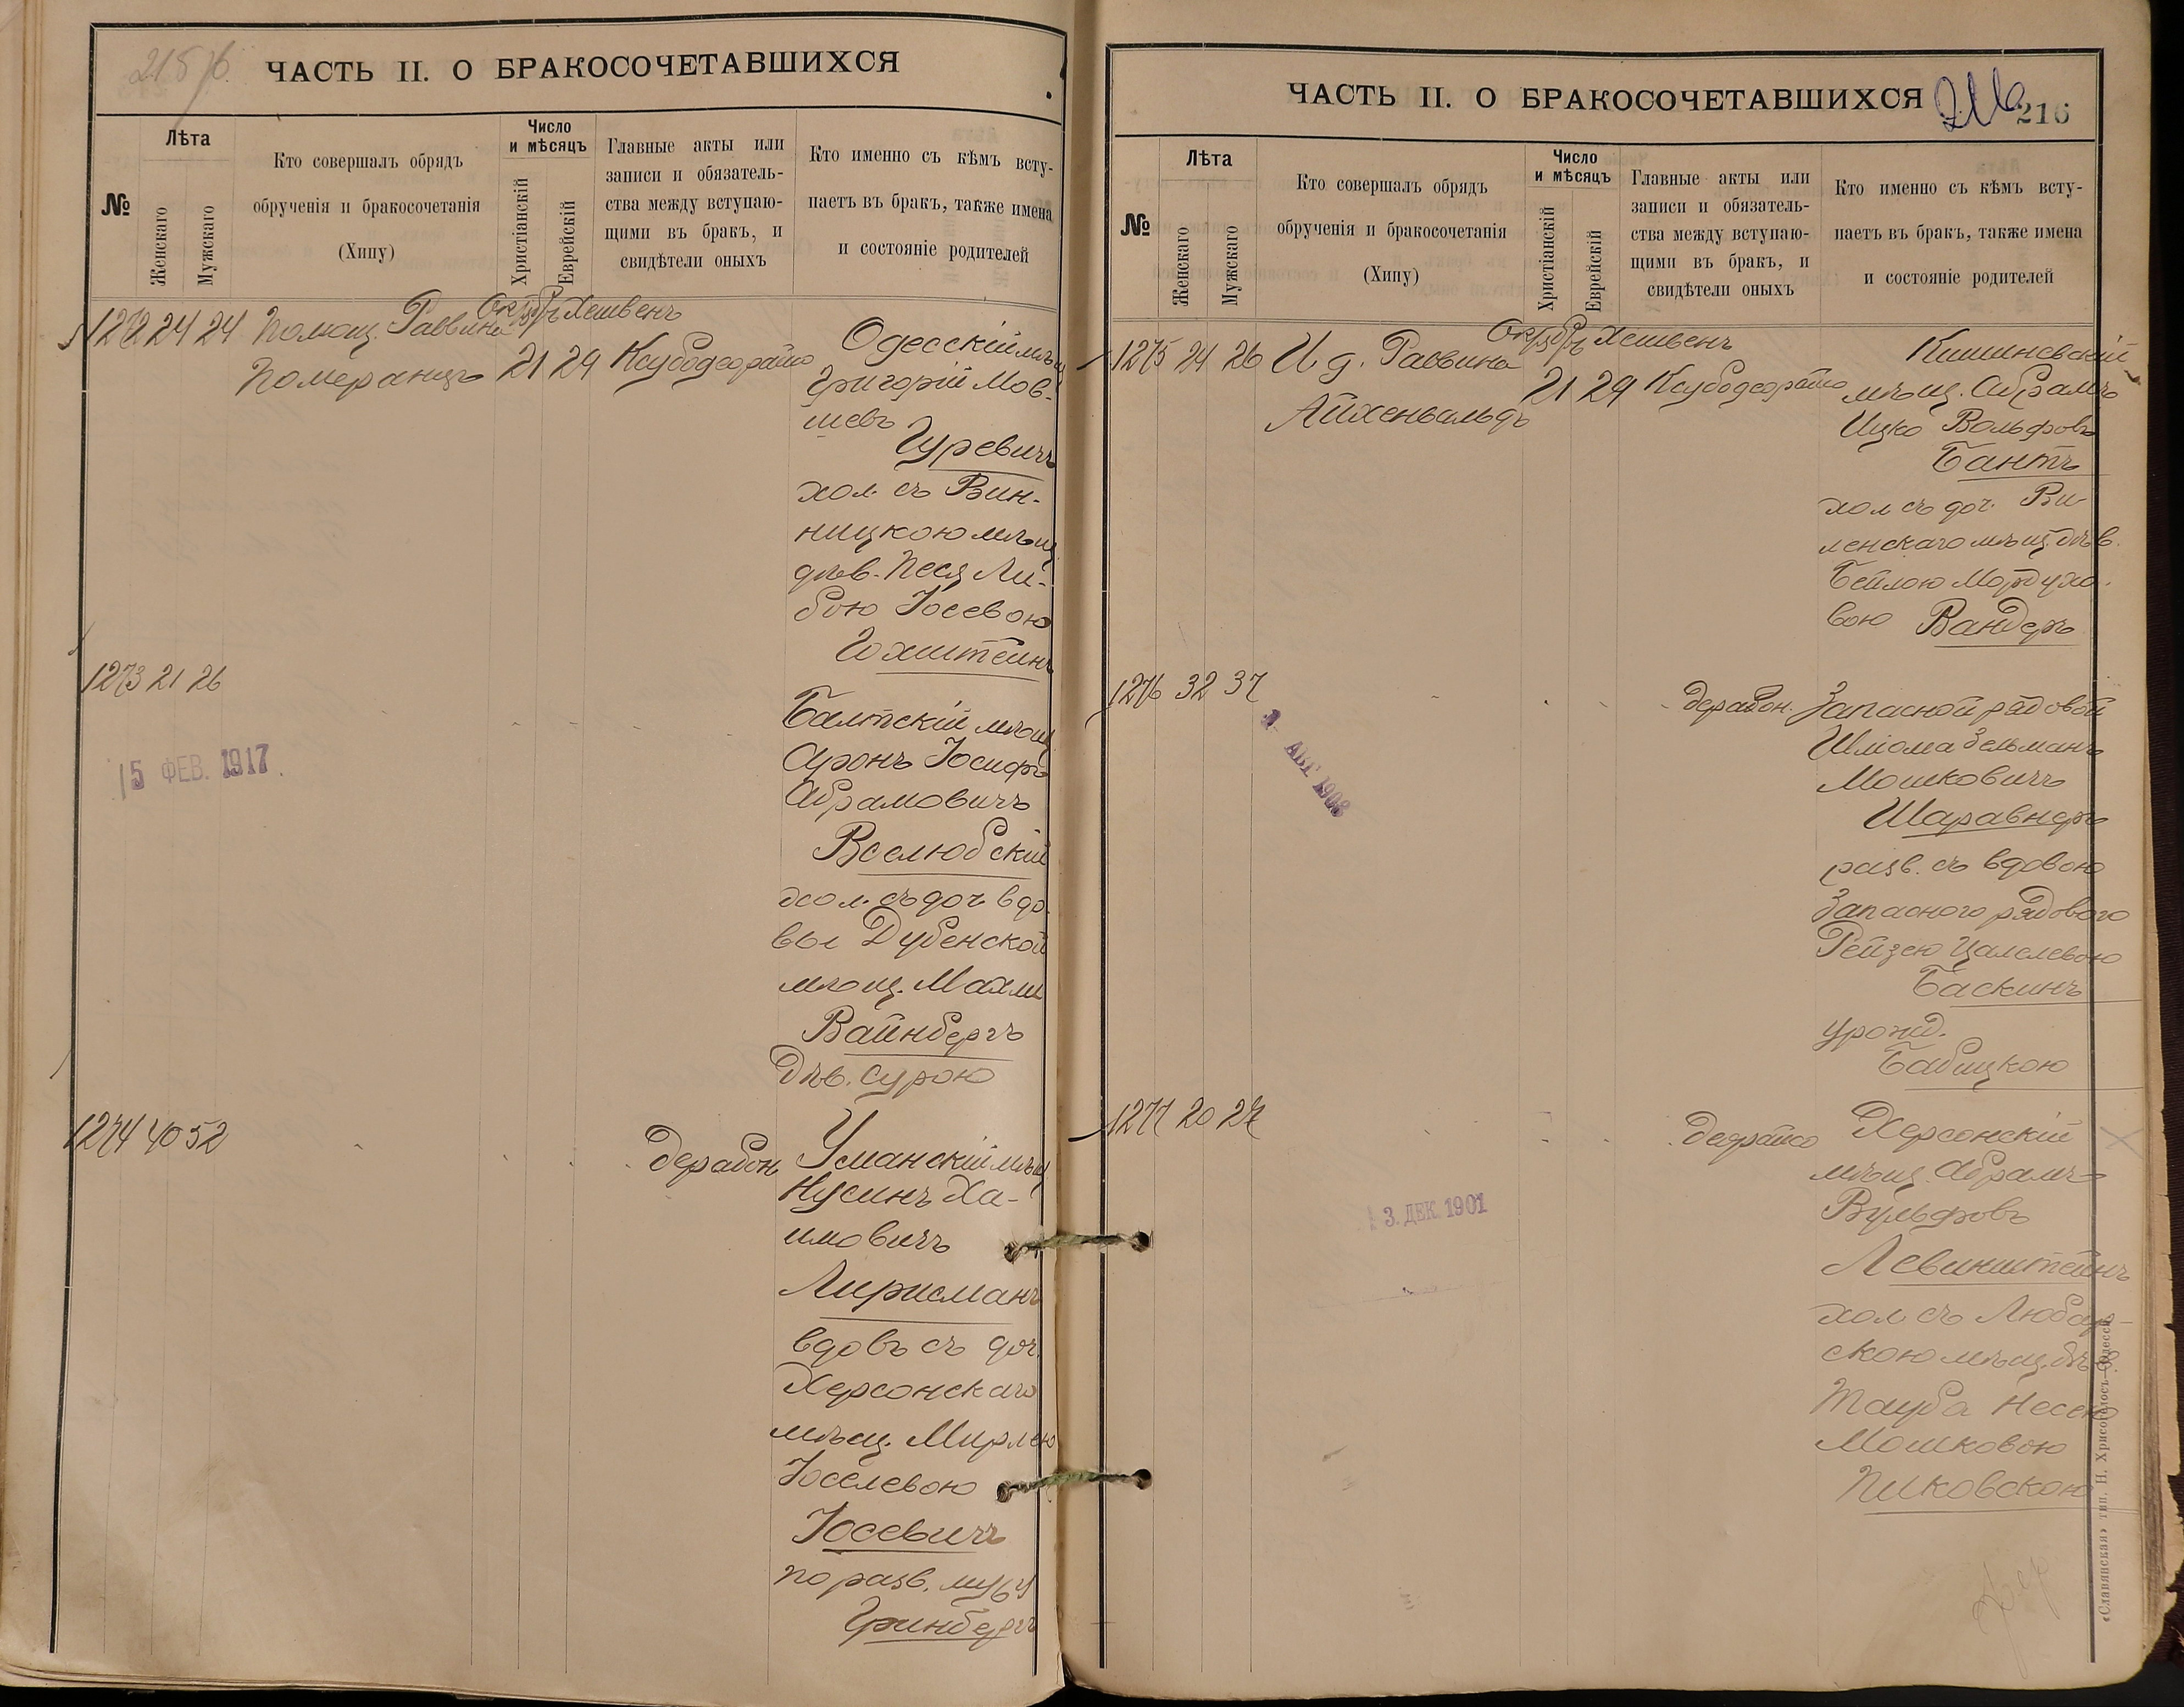 215
ЧАСТЬ II. О БРАКОСОЧЕТАВШИХСЯ
№
Лѣта
Женскаго
Мужскаго
Кто совершалъ обрядъ
обрученія и бракосочетанія
(Хипу)
Число
и мѣсяцъ
Христіанскій
Еврейскій
Главные акты или
записи и обязатель-
ства между вступаю-
щими въ бракъ, и
свидѣтели оныхъ
Кто именно съ кѣмъ всту-
паетъ въ бракъ, также имена
и состояніе родителей
Октябрь Хешвенъ
1272 24 24 Помощ. Раввина
Померанцъ 21 29 Ксубодеорайсо
Одесскій мѣщ
Григорій Мов-
шевъ
Гуревичъ
хол. съ Вин-
ницкою мѣщ
дѣв. Песя Ли-
бою Іосевою
Гохштейнъ
1273 21 26
15 ФЕВ. 1917
Балтскій мѣщ
Аронъ Іосифъ
Абрамовичъ
Вселюбскій
хол. съ доч вдо-
вы Дубенской
мѣщ. Махли
Вайнбергъ
Дѣв. Сурою
1274 40 52
дерабон
Уманскій мѣщ
Нусинъ Ха-
имовичъ
Лирисманъ
вдовъ съ доч.
Херсонскаго
мѣщ. Мирлею
Іоселевою
Іосевичъ
по разв. мужу
Гринбергъ
ЧАСТЬ II. О БРАКОСОЧЕТАВШИХСЯ
216
216
№
Лѣта
Женскаго
Мужскаго
Кто совершалъ обрядъ
обрученія и бракосочетанія
(Хипу)
Число
и мѣсяцъ
Христіанскій
Еврейскій
Главные акты или
записи и обязатель-
ства между вступаю-
щими въ бракъ, и
свидѣтели оныхъ
Кто именно съ кѣмъ всту-
паетъ въ бракъ, также имена
и состояніе родителей
Октябрь Хешвенъ
1275 24 26 И д. Раввина
Айхенвальдъ
21 29 Ксубодеорайсо
Кишиневскій
мѣщ. Абрамъ
Ицко Вольфовъ
Бантъ
хол съ доч. Ви-
ленскаго мѣщ. дѣв.
Бейлою Мордухо-
вою Вандеръ
1276 32 37
АВГ 1908
дерабон.
Запасной рядовой
Шлиома Зельманъ
Мошковичъ
Шаравнеръ
разв. съ вдовою
Запасного рядового
Рейзею Цалелевою
Баскинъ
урожд.
Бабицкою
1277 20 27
3. ДЕК. 1901
Деорайсо
Херсонскій
мѣщ. Абрамъ
Вульфовъ
Левинштейнъ
хол съ Любар-
скою мѣщ. дѣв.
Тауба Несею
Мошковою
Пиковскою
«Славянская» тип. Н. Хрисогелосъ—Одесса.